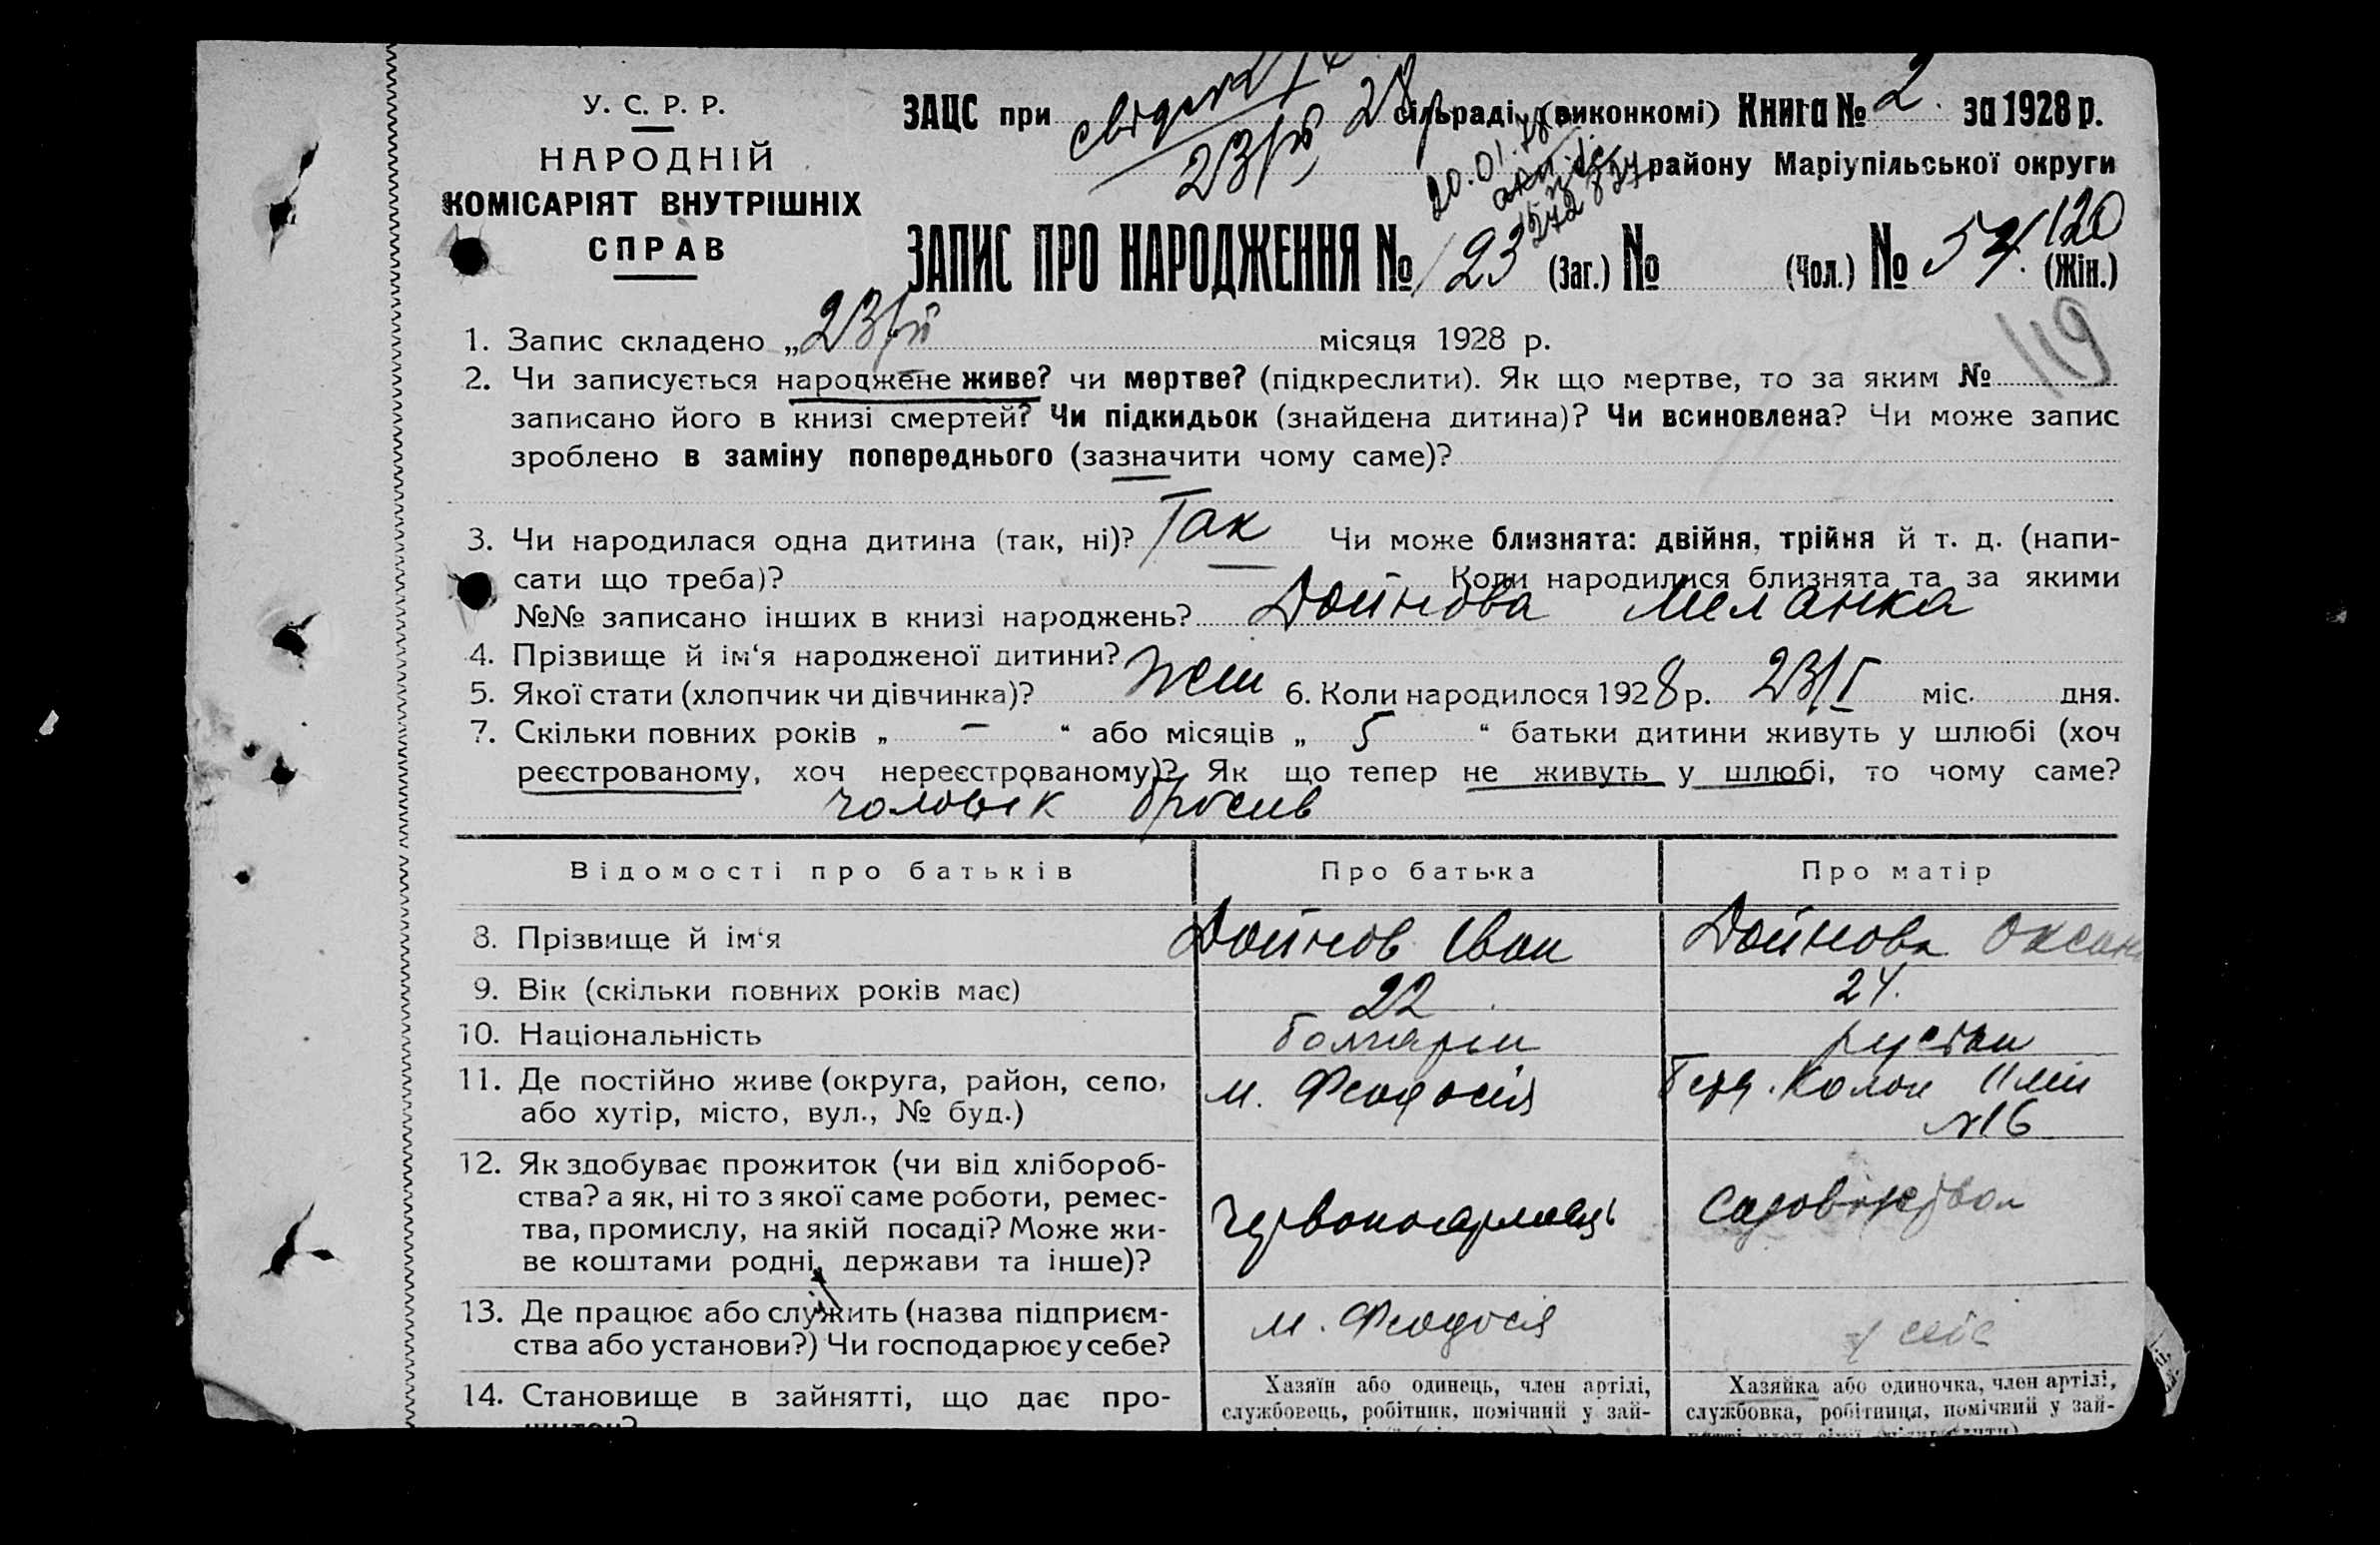 У. С. Р. Р.
НАРОДНІЙ
КОМІСАРІЯТ ВНУТРІШНІХ
СПРАВ
ЗАЦС при сільраді (виконкомі) Книга № 2. за 1928 р.
23/ 28
району Маріупільської округи
20.01.78
ЗАПИС ПРО НАРОДЖЕННЯ № 123 (Заг.) № (Чол.) № 54. (Жін.)
120
119
1. Запис складено „23/ місяця 1928 р.
2. Чи записується народжене живе? чи мертве? (підкреслити). Як що мертве, то за яким №
записано його в книзі смертей? Чи підкидьок (знайдена дитина)? Чи всиновлена? Чи може запис
зроблено в заміну попереднього (зазначити чому саме)?
3. Чи народилася одна дитина (так, ні)? Так Чи може близнята: двійня, трійня й т. д. (напи-
сати що треба)? – Коли народилися близнята та за якими
№№ записано інших в книзі народжень?
Дойнова Меланка
4. Прізвище й ім‘я народженої дитини?
5. Якої стати (хлопчик чи дівчинка)? жен 6. Коли народилося 1928 р. 23/I міс. дня.
7. Скільки повних років „ – “ або місяців „ 5 “ батьки дитини живуть у шлюбі (хоч
реєстрованому, хоч нереєстрованому)? Як що тепер не живуть у шлюбі, то чому саме?
чоловік бросив
Відомості про батьків Про батька Про матір
8. Прізвище й ім‘я Дойнов Іван Дойнова Оксан
9. Вік (скільки повних років має) 22 24.
10. Національність болгарин
11. Де постійно живе (округа, район, село, м. Феодосія Колон
або хутір, місто, вул., № буд.) №16
12. Як здобуває прожиток (чи від хлібороб-
ства? а як, ні то з якої саме роботи, ремес-
тва, промислу, на якій посаді? Може жи-
ве коштами родні, держави та інше)?
червоноармієць
13. Де працює або служить (назва підприєм- м. Феодосія у себе
ства або установи?) Чи господарює у себе?
14. Становище в зайнятті, що дає про-
Хазяїн або одинець, член артілі,
службовець, робітник, помічний у зай-
Хазяйка або одиночка, член артілі,
службовка, робітниця, помічний у зай-